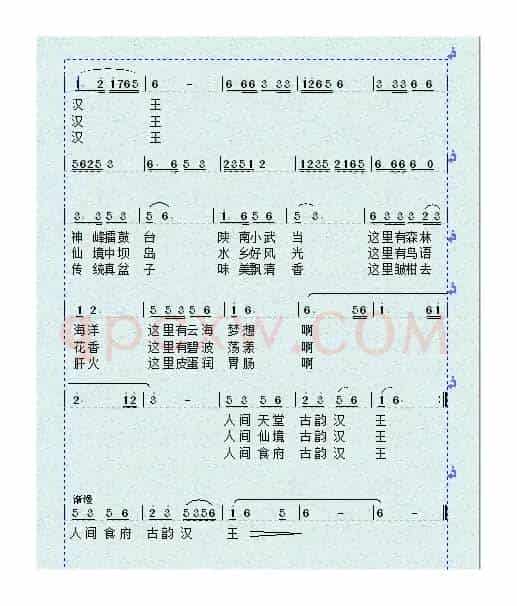 1. 2 1765 | 6 - | 6 66 3 33 | 1265 6 | 3 33 6 6
汉 王
汉 王
汉 王
5625 3 | 6. 6 5 3 | 2351 2 | 1235 2165 | 6 66 6 0
3. 3 5 3 | 5 6. | 1. 6 5 6 | 5 3. | 6 3 3 3 2 3
神 峰擂鼓 台 陕 南小武 当 这里有森林
仙 境中坝 岛 水 乡好风 光 这里有鸟语
传 统真盆 子 味 美飘清 香 这里皱柑去
1 2. | 5 5 3 5 6 | 1 2. | 6. 56 | 1. 61
海洋 这里有云海 梦想 啊
花香 这里有碧波 荡漾 啊
肝火 这里皮蛋润 胃肠 啊
qpsxw.COM
2. 12 | 3 - | 5 3 5 6 | 2 3 5 6 | 1 6. :|
人间 天堂 古韵 汉 王
人间 仙境 古韵 汉 王
人间 食府 古韵 汉 王
渐慢
5 3 5 6 | 2 3 5356 | 1 6 5 | 6 - | 6 - |
人间 食府 古韵 汉 王